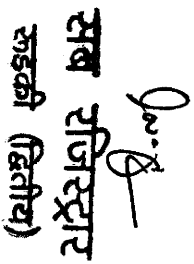 सब रजिस्ट्रार
रुड़की (द्वितीय)